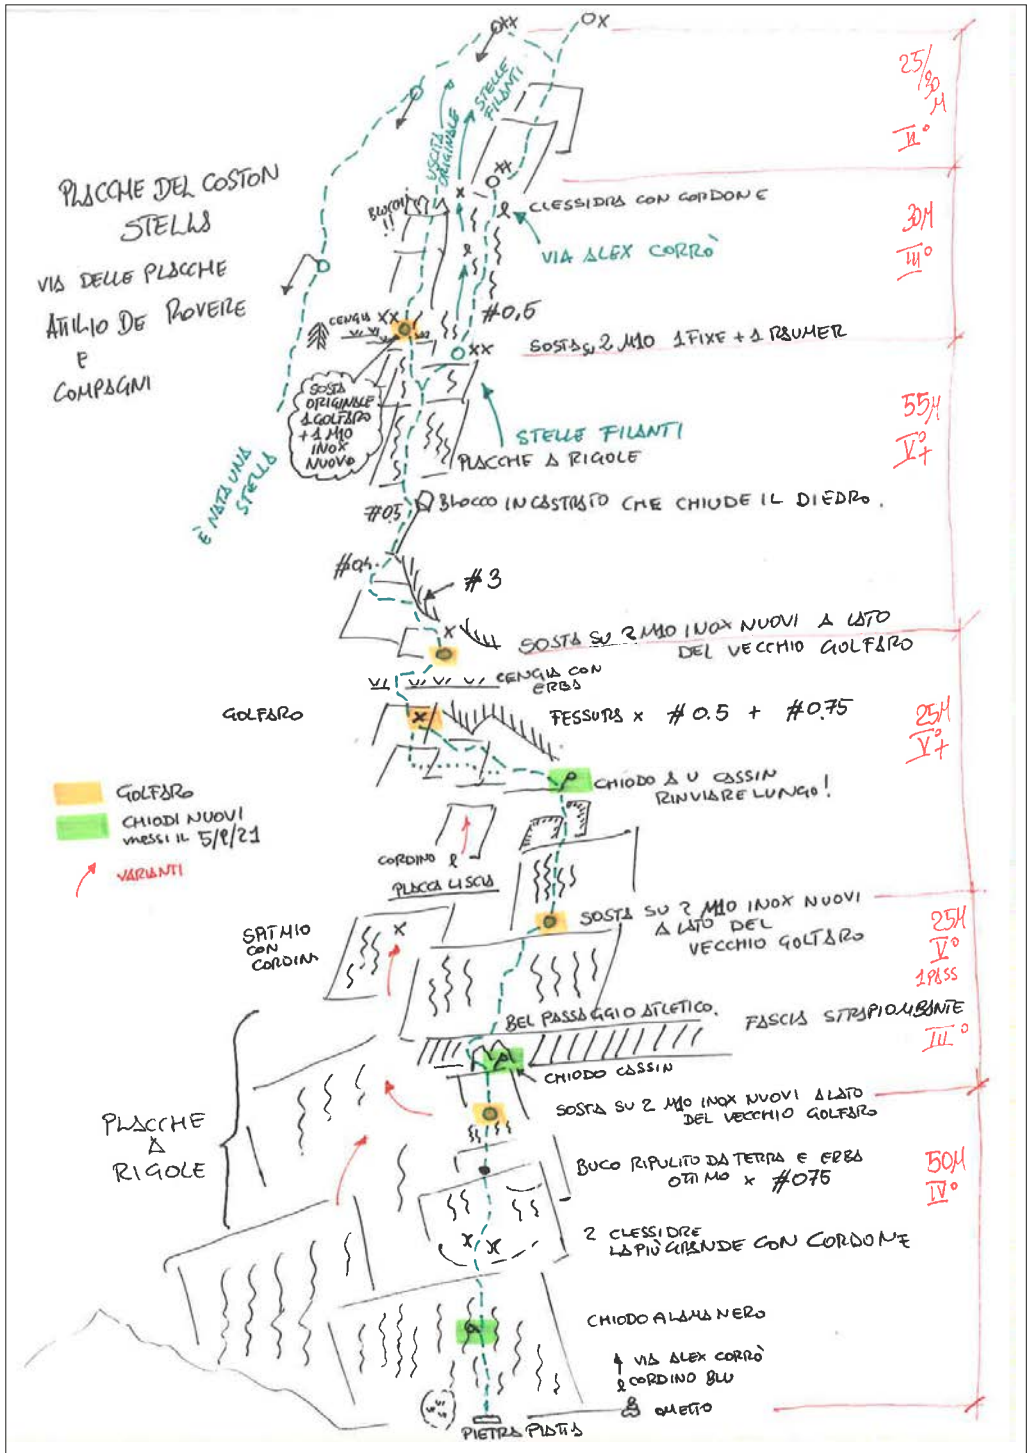 25/30 M
II°
USCITA ORIGINALE
STELLE FILANTI
PLACCHE DEL COSTON
STELLA
VIA DELLE PLACCHE
ATTILIO DE ROVERE
E
COMPAGNI
BLOCCHI !!
CLESSIDRA CON CORDONE
VIA ALEX CORRÒ
30M
III°
CENGIA XX
#0,5
SOSTA SU 2 M10 1 FIXE + 1 RAUMER
SOSTA
ORIGINALE
1 GOLFARO
+ 1 M10
INOX
NUOVO
55M
V°+
STELLE FILANTI
PLACCHE A RIGOLE
È NATA UNA
STELLA
#0.5
BLOCCO INCASTRATO CHE CHIUDE IL DIEDRO.
#0,4
#3
SOSTA SU 2 M10 INOX NUOVI A LATO
DEL VECCHIO GOLFARO
CENGIA CON
ERBA
GOLFARO
FESSURA x #0.5 + #0.75
25M
V°+
CHIODO A U CASSIN
RINVIARE LUNGO!
GOLFARO
CHIODI NUOVI
messi il 5/9/21
VARIANTI
CORDINO
PLACCA LISCIA
SOSTA SU 2 M10 INOX NUOVI
A LATO DEL
VECCHIO GOLFARO
25M
V°
1 PASS
CON
CORDINO
BEL PASSAGGIO ATLETICO.
FASCIA STRAPIOMBANTE
III°
CHIODO CASSIN
SOSTA SU 2 M10 INOX NUOVI A LATO
DEL VECCHIO GOLFARO
PLACCHE
A
RIGOLE
BUCO RIPULITO DA TERRA E ERBA
OTTIMO x #075
50M
IV°
2 CLESSIDRE
LA PIÙ GRANDE CON CORDONE
CHIODO A LAMA NERO
VIA ALEX CORRÒ
CORDINO BLU
OMETTO
PIETRA PIATTA